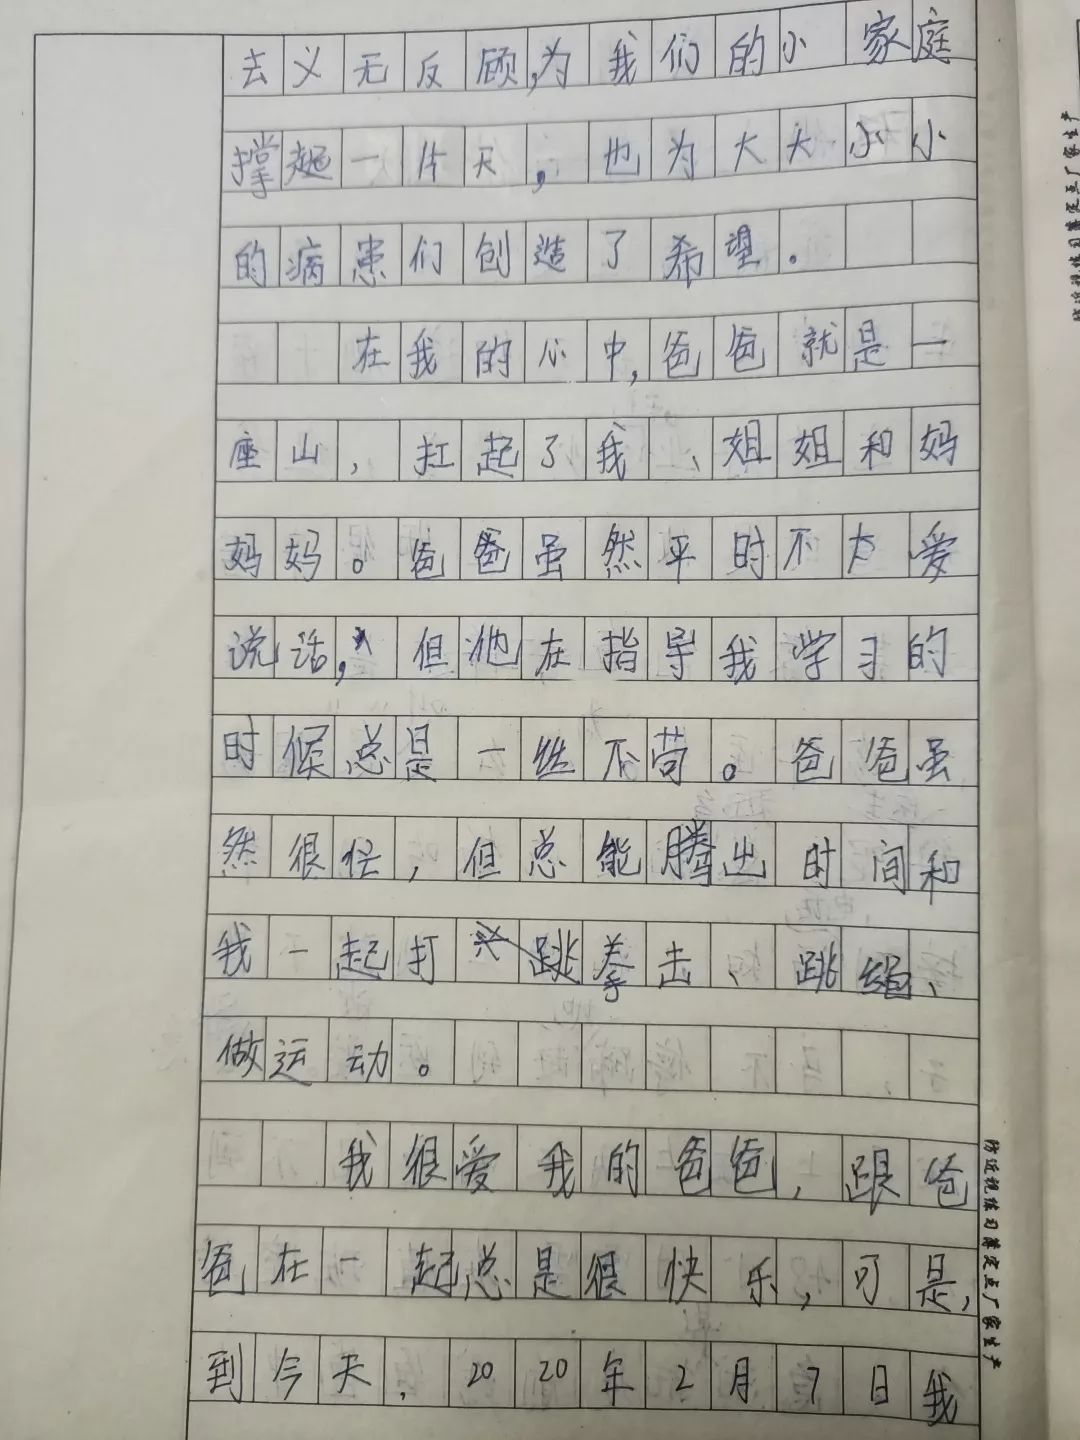 去义无反顾,为我们的小家庭
撑起一片天,也为大大小小
的病患们创造了希望。
在我的心中,爸爸就是一
座山,扛起了我、姐姐和妈
妈妈。爸爸虽然平时不大爱
说话,但他在指导我学习的
时候总是一丝不苟。爸爸虽
然很忙,但总能腾出时间和
我一起打拳击、跳绳、
做运动。
我很爱我的爸爸,跟爸
爸在一起总是很快乐,可是,
到今天,2020年2月7日我
防近视练习薄定点厂家生产
防近视练习薄定点厂家生产